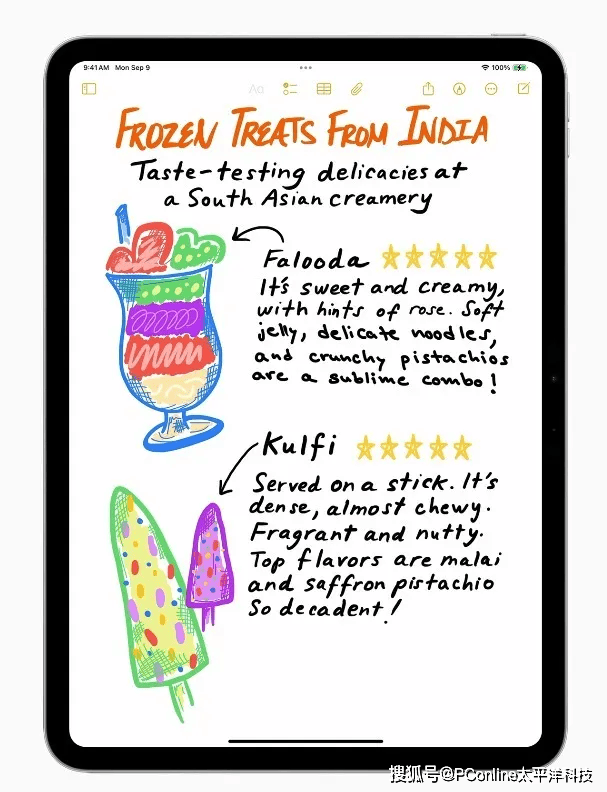 9:41 AM Mon Sep 9
100%
Aa
FROZEN TREATS FROM INDIA
Taste-testing delicacies at
a South Asian creamery
Falooda
It's sweet and creamy,
with hints of rose. Soft
jelly, delicate noodles,
and crunchy pistachios
are a sublime combo!
Kulfi
Served on a stick. It's
dense, almost chewy.
Fragrant and nutty.
Top flavors are malai
and saffron pistachio
So decadent!
搜狐号@PConline太平洋科技